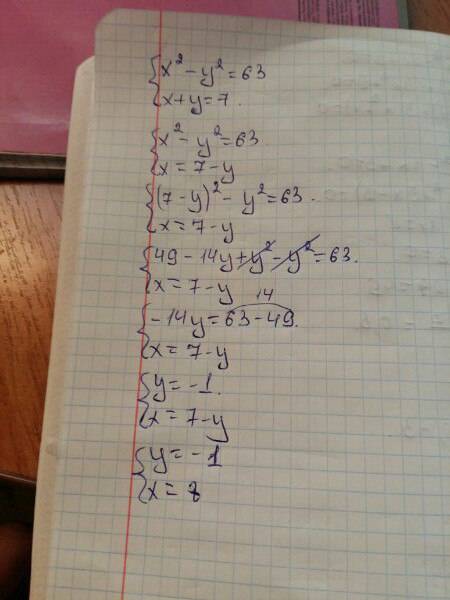 x² - y² = 63
x + y = 7.
x² - y² = 63.
x = 7 - y
(7 - y)² - y² = 63.
x = 7 - y
49 - 14y + y² - y² = 63.
x = 7 - y
14
- 14y = 63 - 49.
x = 7 - y
y = -1.
x = 7 - y
y = -1
x = 8